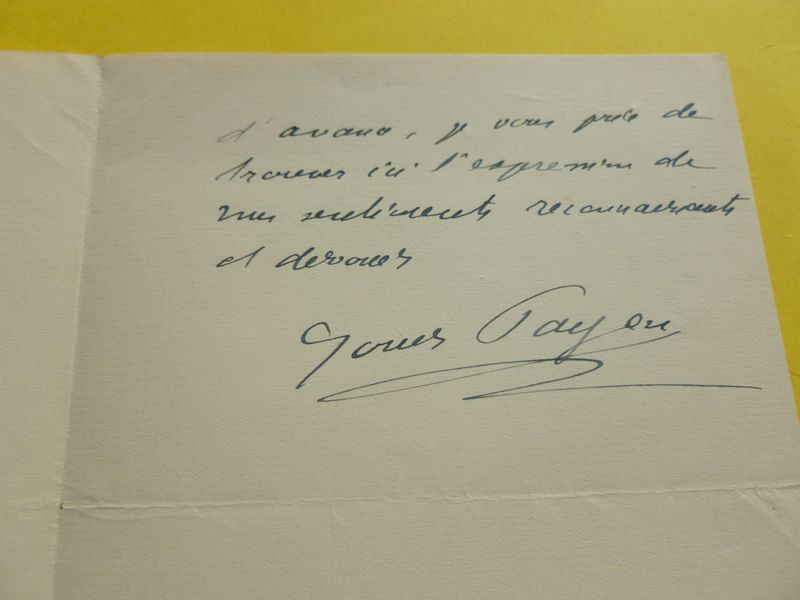 d'avance, je vous prie de
trouver ici l'expression de
mes sentiments reconnaissants
et dévoués
Louis Payen